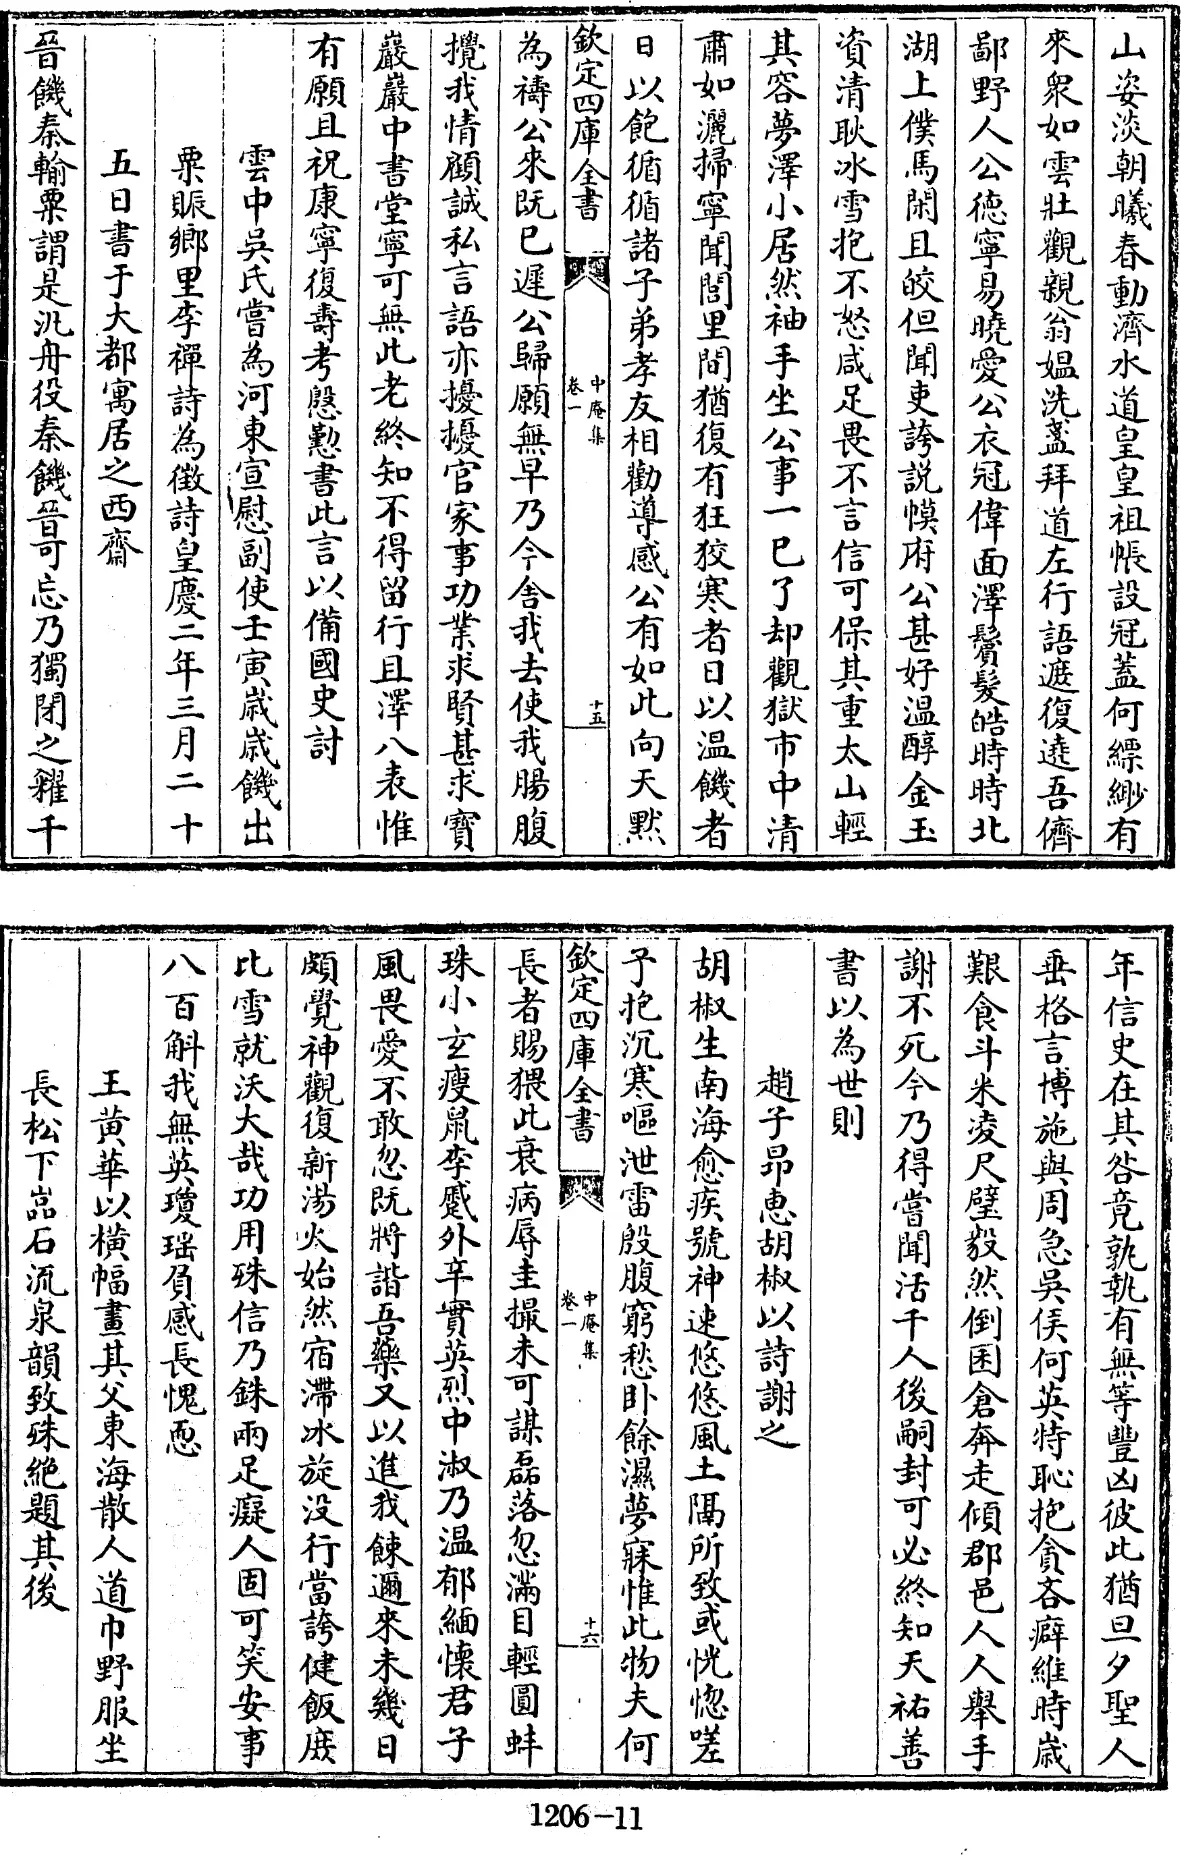 山姿淡朝曦春動濟水道皇皇祖帳設冠蓋何縹緲有
來衆如雲壯觀親翁媼洗盞拜道左行語遮復遶吾儕
鄙野人公德寧易曉愛公衣冠偉面澤鬢髮皓時時北
湖上僕馬閑且皎但聞吏誇説幙府公甚好温醇金玉
資清耿冰雪抱不怒咸足畏不言信可保其重太山輕
其容夢澤小居然袖手坐公事一巳了却觀獄市中清
肅如灑掃寧聞閭里間猶復有狂狡寒者日以温饑者
日以飽循循諸子弟孝友相勸導感公有如此向天黙
欽定四庫全書
中庵集
卷一
十五
為禱公來既巳遲公歸願無早乃今舍我去使我腸腹
攪我情顧誠私言語亦擾擾官家事功業求賢甚求寳
巖巖中書堂寧可無此老終知不得留行且澤八表惟
有願且祝康寧復壽考慇懃書此言以備國史討
雲中吳氏嘗為河東宣慰副使壬寅歲歲饑出
粟賑鄉里李禪詩為徵詩皇慶二年三月二十
五日書于大都寓居之西齋
晉饑秦輸粟謂是汎舟役秦饑晉可忘乃獨閉之糴千
年信史在其咎竟孰執有無等豐凶彼此猶旦夕聖人
垂格言博施與周急吳侯何英特恥抱貪吝癖維時歲
艱食斗米凌尺璧毅然倒囷倉奔走傾郡邑人人舉手
謝不死今乃得嘗聞活千人後嗣封可必終知天祐善
書以為世則
趙子昻惠胡椒以詩謝之
胡椒生南海愈疾號神速悠悠風土隔所致或恍惚嗟
予抱沉寒嘔泄雷殷腹窮愁卧餘濕夢寐惟此物夫何
欽定四庫全書
中庵集
卷一
十六
長者賜猥此衰病辱圭撮未可謀磊落忽滿目輕圓蚌
珠小玄瘦鼠李蹙外辛實英烈中淑乃温郁緬懷君子
風畏愛不敢忽既將諧吾藥又以進我餗邇來未幾日
頗覺神觀復新湯火始然宿滯冰旋没行當誇健飯庶
比雪就沃大哉功用殊信乃銖兩足癡人固可笑安事
八百斛我無英瓊瑶負感長愧恧
王黄華以橫幅畫其父東海散人道巾野服坐
長松下嵓石流泉韻致殊絶題其後
1206-11